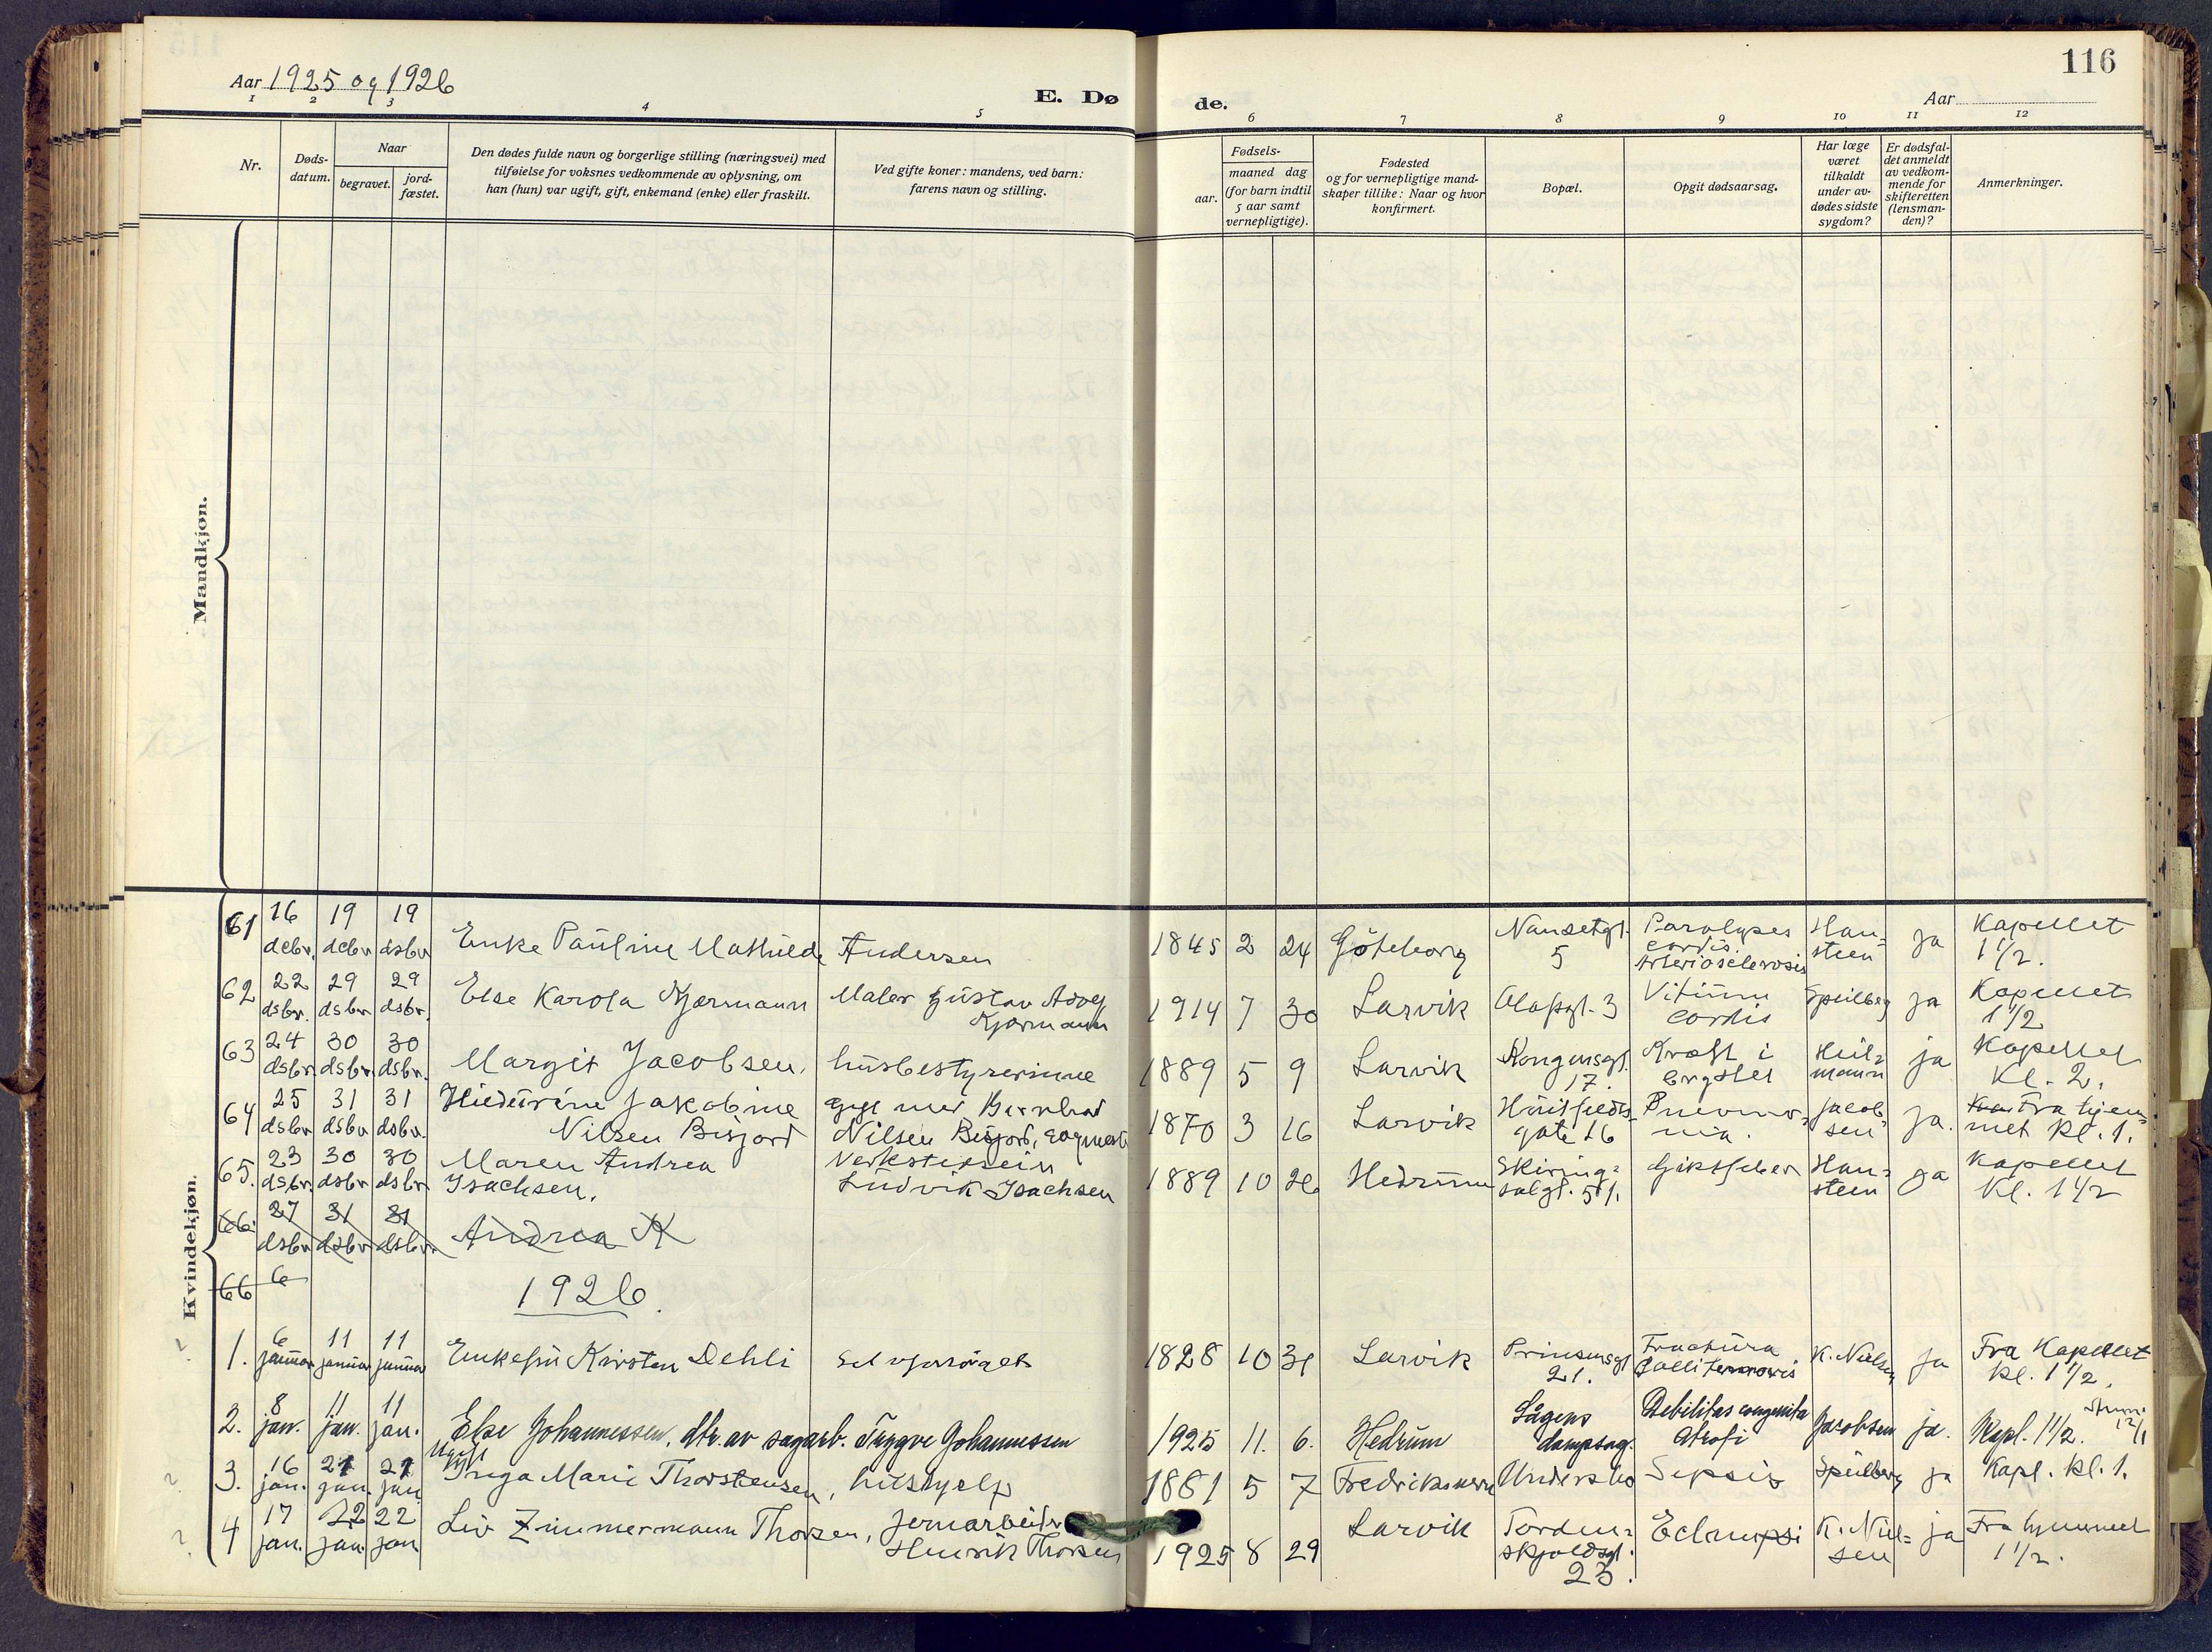 116
Aar 1925 og 1926
E. Dø de.
Aar
1 2 3 4 5 6 7 8 9 10 11 12
Nr.
Døds-
datum.
Naar
begravet.
jord-
fæstet.
Den dødes fulde navn og borgerlige stilling (næringsvei) med
tilføielse for voksnes vedkommende av oplysning, om
han (hun) var ugift, gift, enkemand (enke) eller fraskilt.
Ved gifte koner: mandens, ved barn:
farens navn og stilling.
Fødsels-
aar.
maaned dag
(for barn indtil
5 aar samt
vernepligtige).
Fødested
og for vernepligtige mand-
skaper tillike: Naar og hvor
konfirmert.
Bopæl.
Opgit dødsaarsag.
Har læge
været
tilkaldt
under av-
dødes sidste
sygdom?
Er dødsfal-
det anmeldt
av vedkom-
mende for
skifteretten
(lensman-
den)?
Anmerkninger.
Mandkjøn.
Kvindekjøn.
61 16 19 19 Enke Pauline Mathilde Andersen 1845 2 24 Göteborg Nansetgt. Paralyses Han- ja Kapellet
debr. debr. dsbr. 5 cordis. steen 1 1/2.
Arteriosclerosis
62 22 29 29 Else Karola Kjørmann Maler Gustav Adolf 1914 7 30 Larvik Olafsgt. 3 Vitium Speilberg ja Kapellet
dsbr. dsbr dsbr. Kjørmann cordis 1 1/2
63 24 30 30 Margit Jacobsen, husbestyrerinne 1889 5 9 Larvik Kongensgt. Kræft i Heil- ja Kapellet
dsbr. dsbr. dsbr. 17. brystet mann Kl. 2.
64 25 31 31 Jakobine gift med 1870 3 16 Larvik Pneumo- Jacob- ja. Fra hjem-
dsbr dsbr dsbr. Nilsen Bisjord Nilsen Bisjord, gate 16 nia. sen met kl. 1.
65. 23 30 30 Maren Andrea Verkstedein 1889 10 26 Hedrum Skiring- Giktfeber Han- ja Kapellet
dsbr. dsbr dsbr Isachsen. Ludvik Isachsen salgt. steen Kl. 1 1/2
66. 27 31 31 Andrea K
dsbr dsbr dsbr.
66 6
1926.
1. 6 11 11 Enkefru Kirsten Dehli selvforsørget 1828 10 31 Larvik Prinsensgt Fractura K. Nielsen ja Fra Kapellet
januar januar januar 21. colli femoris kl. 1 1/2.
2. 8 11 11 Else Johannessen, dtr. av sagarb. Tryggve Johannessen 1925 11. 6. Hedrum Lågens Debilitas congenita Jacobsen ja. Kapl. 1 1/2. 12/1
jan. jan. jan. dampsag. Atrofi
Ugift
3. 16 21 21 Inga Marie Thorstensen, hushjelp 1881 5 7 Fredriksvern Undersbo Sepsis Speilberg ja Kapl. kl. 1.
jan. jan. jan.
4 17 22 22 Liv Zimmermann Thorsen, Jernarbeider 1925 8 29 Larvik Torden- K. Niel- ja
jan. jan. jan Henrik Thorsen skjoldsgt. sen 1 1/2.
23.